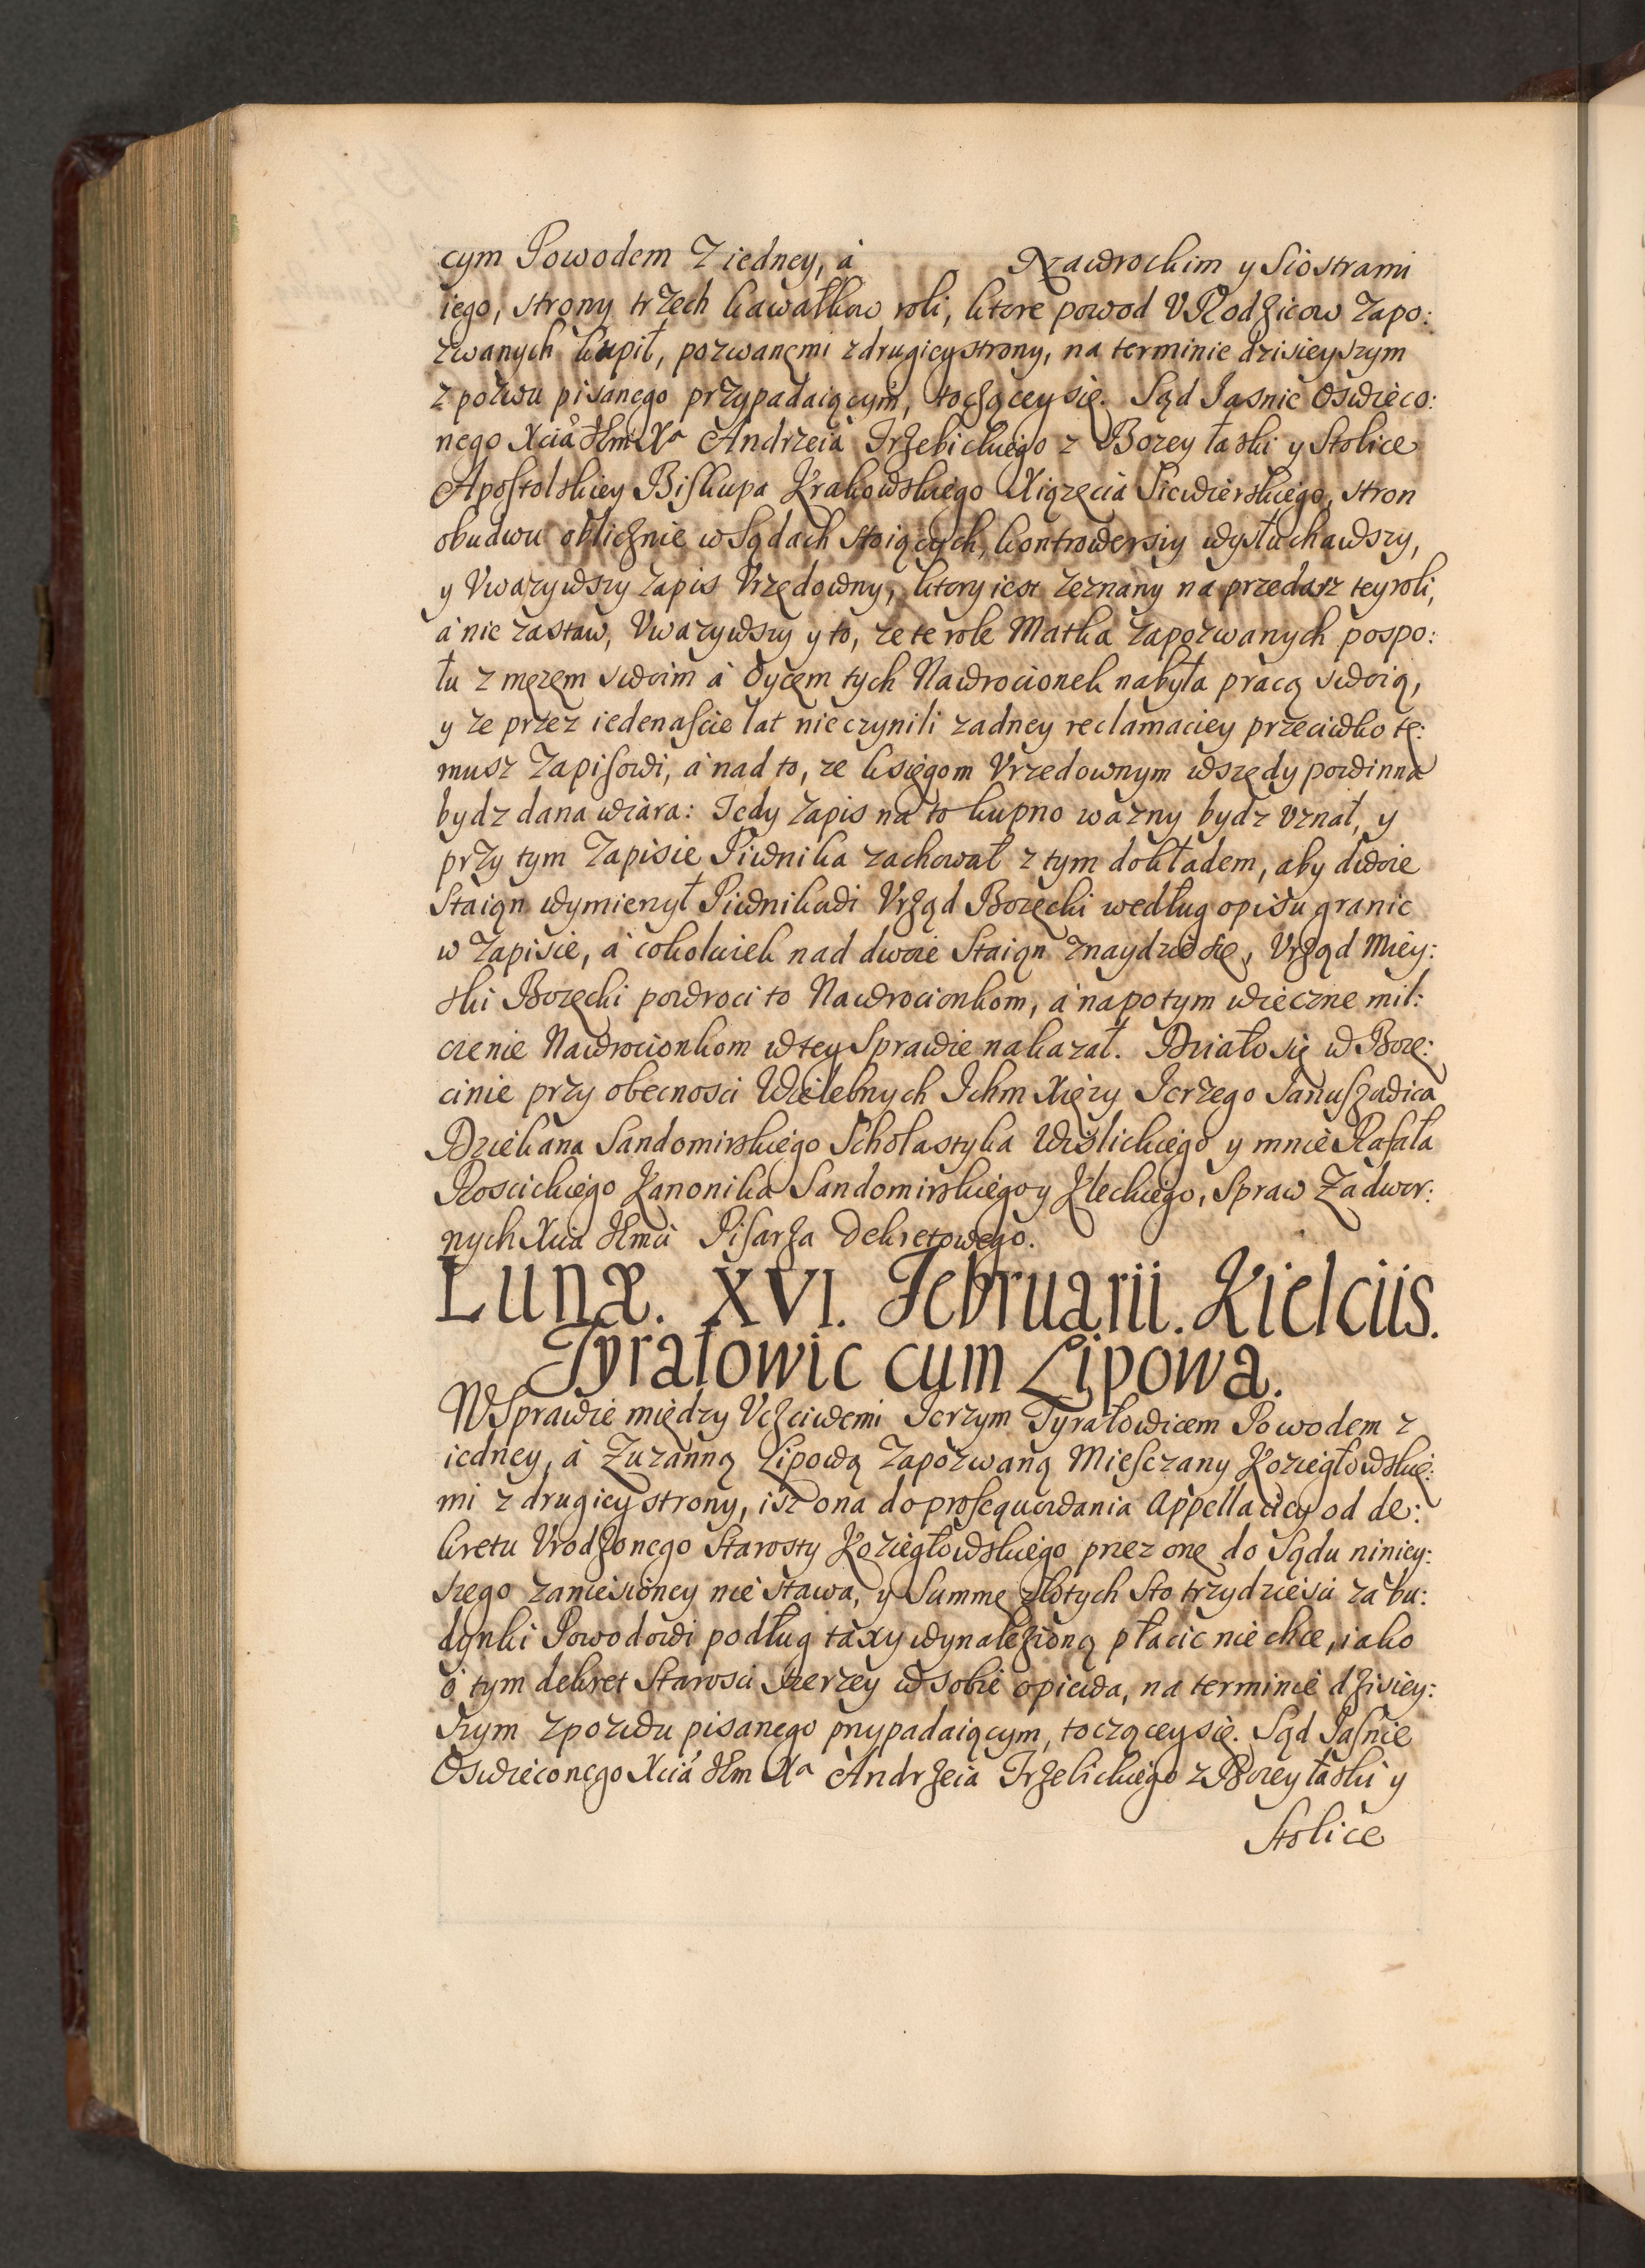 cym Powodem z iedney, á Nawrockim y Siostrami
iego, strony trzech kawałkow roli, ktore powod V Rodzicow Zapo:
zwanych kupił, pozwanęmi z drugiey strony, na terminie dzisieyszym
z pozwu pisanego przypadaiącym, toczącey się. Sąd Jasnie Oświeco:
nego Xcia Jłmci Xa Andrzeia Trzebickiego z Bozey łaski y Stolice
Apostolskiey Biskupa Krakowskiego Xiązęcia Siewierskiego, stron
obudwu oblicznie w Sądach stoiących, kontrowersiy wysłuchawszy,
y Vwazywszy zapis Vrzędowny, ktory iest zeznany na przedarz tey roli,
á nie zastaw, Vwazywszy y to, ze te role Matka zapozwanych pospo:
łu z męzem swoim á Oycem tych Nawrocionek nabyła pracą swoią,
y ze przez iedenaście lat nie czynili zadney reclamaciey przeciwko tę:
musz Zapisowi, á nad to, ze księgom Vrzedownym wszędy powinna
bydz dana wiara: Tedy zapis na to kupno wazny bydz vznał, y
przy tym Zapisie Piwnika zachował z tym dokładem, aby dwoie
Staiąn wymienył Piwnikowi Vrząd Bozęcki według opisu granic
w Zapisie, á cokolwiek nad dwoie Staiąn znaydzie się, Vrząd Miey:
ski Bozęcki powroci to Nawrocionkom, á na potym wieczne mil:
czenie Nawrocionkom w tey Sprawie nakazał. Działo się w Bozę:
cinie przy obecnosci Wielebnych Ichm Xięzy Jerzego Januszowica
Dziekana Sandomirskiego Scholastyka Wislickiego y mnie Rafała
Roscickiego Kanonika Sandomirskiego y Kleckiego, Spraw Zadwor:
nych Xcia Jłmci Pisarza Dekretowego.
Lunæ. XVI. Februarii. Kielciis.
Tyrałowic cum Lipowa.
W Sprawie między Vczciwemi Jerzym Tyrałowicem Powodem z
iedney, á Zuzanną Lipową Zapozwaną Miesczany Koziegłowskię:
mi z drugiey strony, isz ona do prosequowania Appellaciey od de:
kretu Vrodzonego Starosty Koziegłowskiego przez onę do Sądu niniey:
szego zaniesioney nie stawa, y Summę złotych Sto trzydziesci za bu:
dynki Powodowi podług taxy wynalezioną płacic nie chce, iako
o tym dekret Starosci szerzey w sobie opiewa, na terminie dzisiey:
szym z pozwu pisanego przypadaiącym, toczącey się. Sąd Jasnie
Oswieconego Xcia Jłm Xa Andrzeia Trzebickiego z Bozey łaski y
Stolice